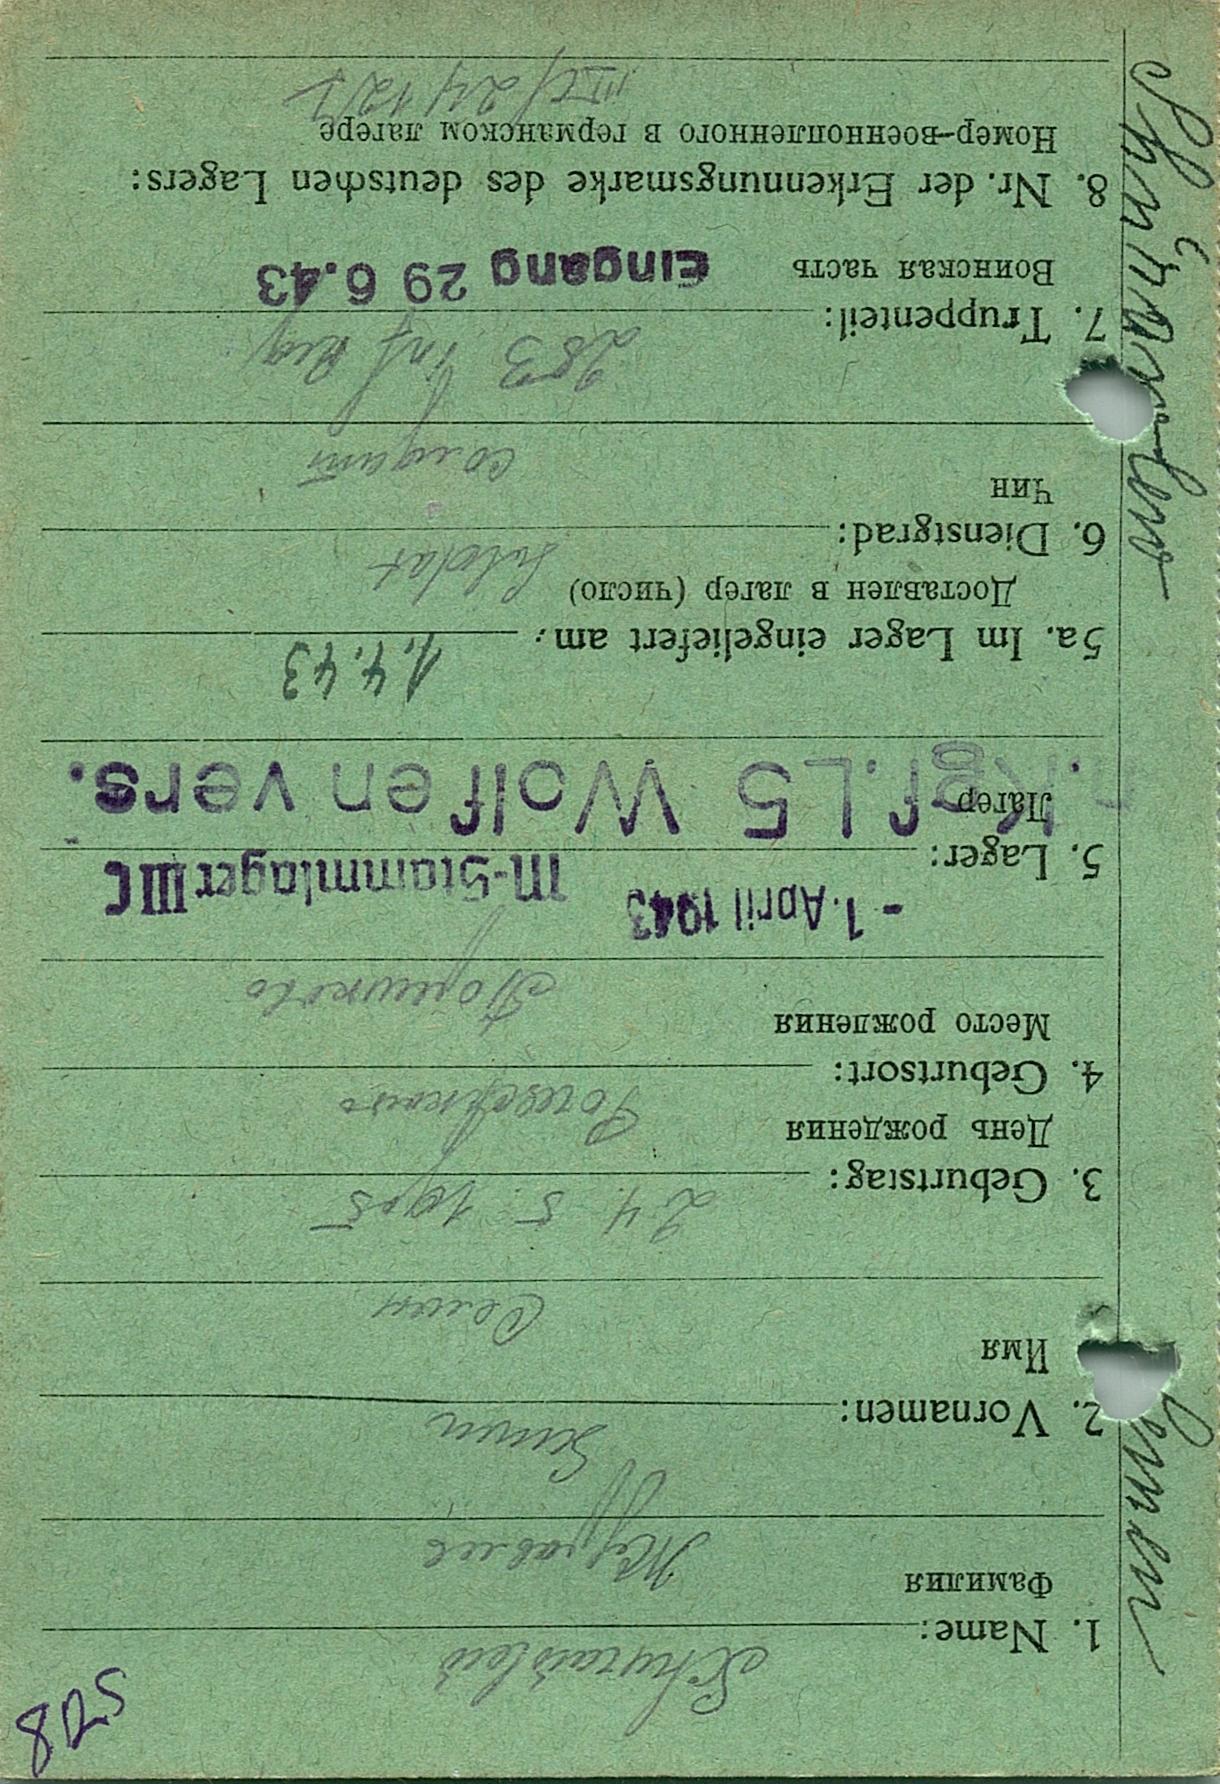 825
1. Name: Schurawlew
Фамилия
Журавлев
2. Vornamen: Semen
Имя
Семен
3. Geburtstag: 24. 5. 1905
День рождения
4. Geburtsort:
Место рождения
- 1. April 1943 M-Stammlager III C
5. Lager:
Лагер
n. Kgf. L 5 Wolfen vers.
5a. Im Lager eingeliefert am: 1.4.43
Доставлен в лагер (число)
6. Dienstgrad: Soldat
Чин
солдат
7. Truppenteil: 283 Inf Reg
Воинская часть
Eingang 29 6.43
8. Nr. der Erkennungsmarke des deutschen Lagers:
Номер-военнопленного в германском лагере
III C/24127